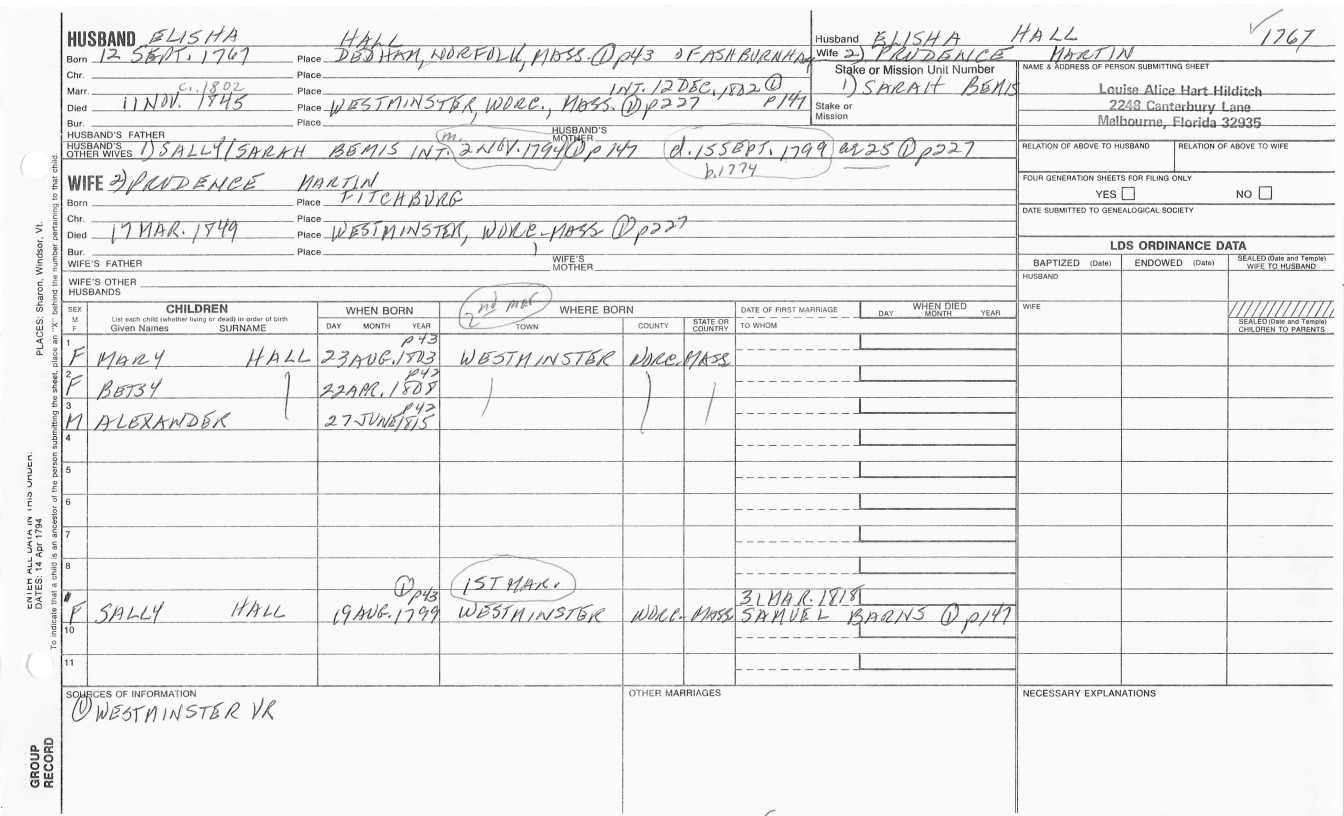 HUSBAND ELISHA HALL
Born 12 SEPT. 1767 Place DEDHAM, NORFOLK, MASS. ① p43 OF ASHBURNHAM
Chr. Place
Marr. c. 1802 Place INT. 12 DEC, 1802 ① p147
Died 11 NOV. 1845 Place WESTMINSTER, WORC., MASS. ① p227
Bur. Place
HUSBAND'S FATHER HUSBAND'S MOTHER
HUSBAND'S OTHER WIVES 1) SALLY/SARAH BEMIS INT. m. 2 NOV. 1794 ① p147 d. 15 SEPT. 1799 ae 25 ① p227
b. 1774
WIFE 2) PRUDENCE MARTIN
Born Place FITCHBURG
Chr. Place
Died 17 MAR. 1849 Place WESTMINSTER, WORC-MASS ① p227
Bur. Place
WIFE'S FATHER WIFE'S MOTHER
WIFE'S OTHER HUSBANDS
Husband ELISHA HALL 1767
Wife 2) PRUDENCE MARTIN
Stake or Mission Unit Number
1) SARAH BEMIS
Stake or Mission
NAME & ADDRESS OF PERSON SUBMITTING SHEET
Louise Alice Hart Hilditch
2248 Canterbury Lane
Melbourne, Florida 32935
RELATION OF ABOVE TO HUSBAND RELATION OF ABOVE TO WIFE
FOUR GENERATION SHEETS FOR FILING ONLY
YES NO
DATE SUBMITTED TO GENEALOGICAL SOCIETY
LDS ORDINANCE DATA
BAPTIZED (Date) ENDOWED (Date) SEALED (Date and Temple) WIFE TO HUSBAND
HUSBAND
WIFE
SEALED (Date and Temple) CHILDREN TO PARENTS
SEX M F
CHILDREN
List each child (whether living or dead) in order of birth
Given Names SURNAME
WHEN BORN
DAY MONTH YEAR
2nd mar
WHERE BORN
TOWN COUNTY STATE OR COUNTRY
DATE OF FIRST MARRIAGE
TO WHOM
WHEN DIED
DAY MONTH YEAR
1 F MARY HALL 23 AUG. 1803 p43 WESTMINSTER WORC. MASS
2 F BETSY 22 APR. 1808 p42
3 M ALEXANDER 27 JUNE 1815 p42
4
5
6
7
8
1ST MAR.
F SALLY HALL 19 AUG. 1799 ① p43 WESTMINSTER WORC- MASS 31 MAR. 1818 SAMUEL BARNS ① p147
10
11
SOURCES OF INFORMATION
① WESTMINSTER VR
OTHER MARRIAGES
NECESSARY EXPLANATIONS
PLACES: Sharon, Windsor, Vt.
ENTER ALL DATA IN THIS ORDER:
DATES: 14 Apr 1794
To indicate that a child is an ancestor of the person submitting the sheet, place an "X" behind the number pertaining to that child.
GROUP RECORD